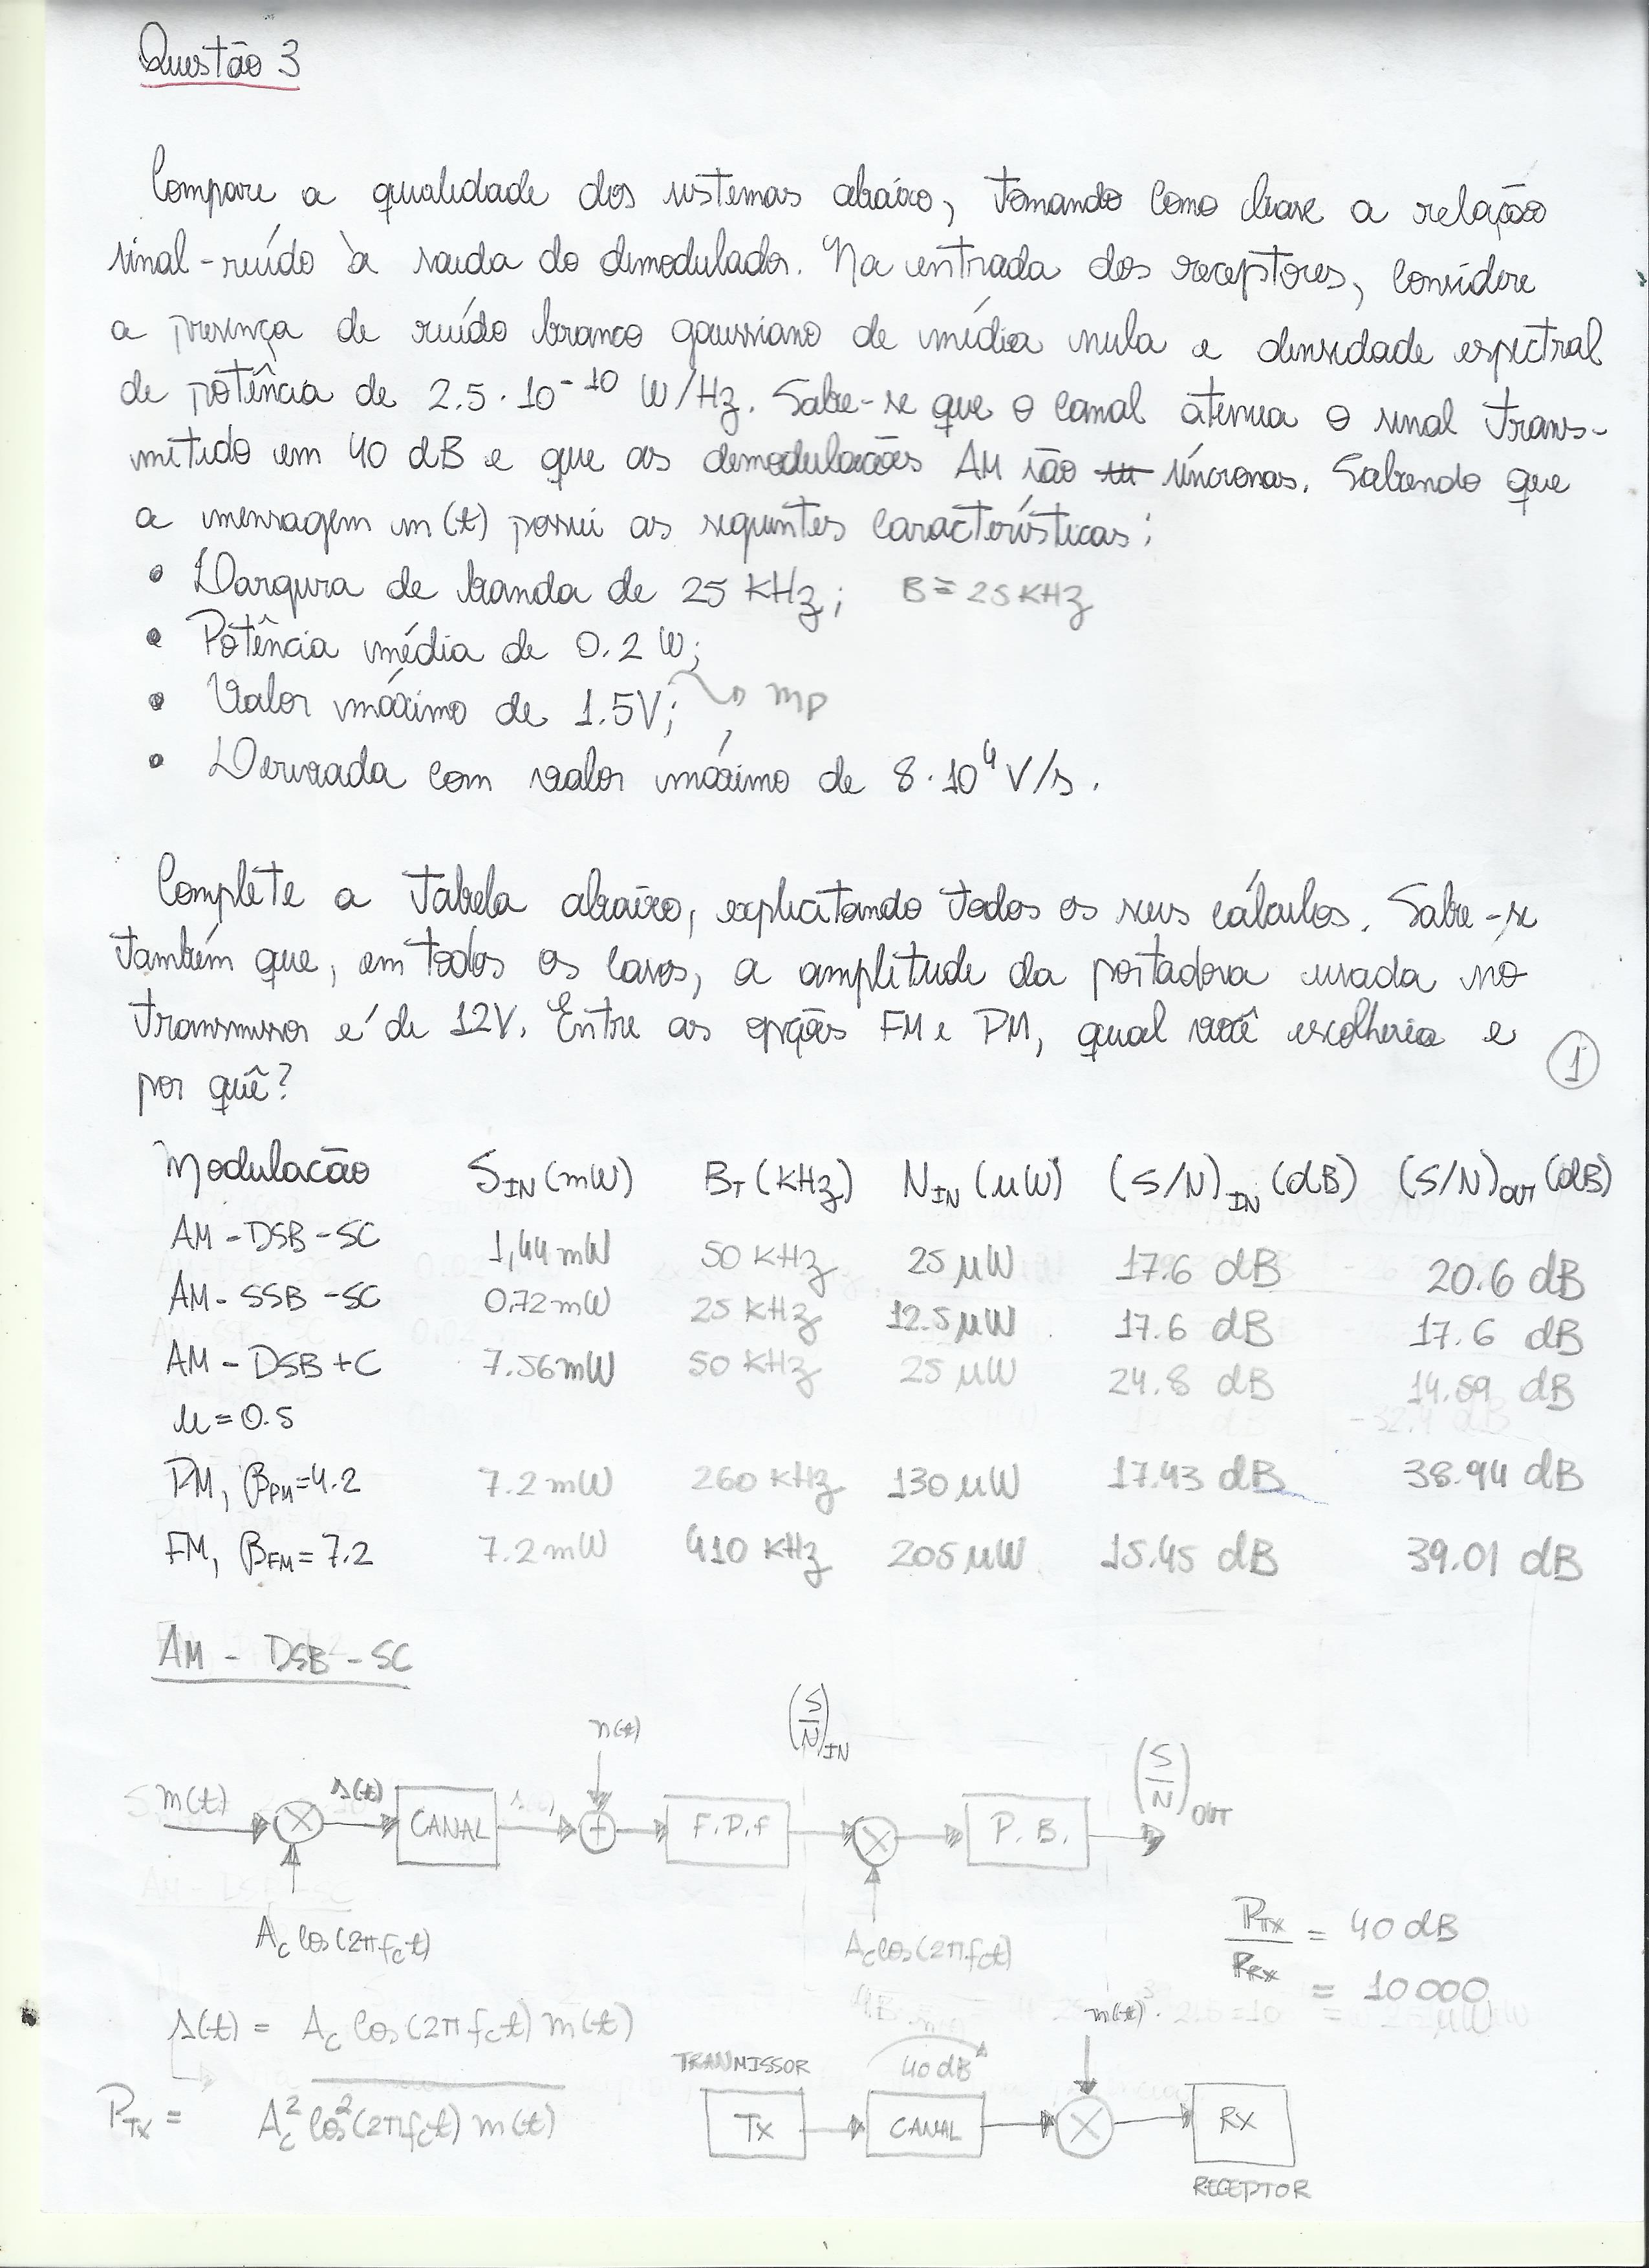 Questão 3
Compare a qualidade dos sistemas abaixo, tomando como base a relação
sinal-ruído à saída do demodulador. Na entrada dos receptores, considere
a presença de ruído branco gaussiano de média nula e densidade espectral
de potência de 2.5 · 10⁻¹⁰ W/Hz. Sabe-se que o canal atenua o sinal trans-
mitido em 40 dB e que as demodulações AM são síncronas. Sabendo que
a mensagem m(t) possui as seguintes características:
• Largura de banda de 25 KHz; B = 25 KHz
• Potência média de 0.2 W;
• Valor máximo de 1.5V; → mp
• Derivada com valor máximo de 8 · 10⁴ V/s.
Complete a tabela abaixo, explicitando todos os seus cálculos. Sabe-se
também que, em todos os casos, a amplitude da portadora usada no
transmissor é de 12V. Entre as opções FM e PM, qual você escolheria e
por quê? ①
Modulacão S_IN (mW) B_T (KHz) N_IN (μW) (S/N)_IN (dB) (S/N)_OUT (dB)
AM - DSB - SC 1,44 mW 50 KHz 25 μW 17.6 dB 20.6 dB
AM - SSB - SC 0.72 mW 25 KHz 12.5 μW 17.6 dB 17.6 dB
AM - DSB + C 7.56 mW 50 KHz 25 μW 24.8 dB 14.59 dB
μ = 0.5
PM, β_PM = 4.2 7.2 mW 260 KHz 130 μW 17.43 dB 38.94 dB
FM, β_FM = 7.2 7.2 mW 410 KHz 205 μW 15.45 dB 39.01 dB
AM - DSB - SC
(S/N)_IN
n(t)
(S/N)_OUT
m(t) × s(t) CANAL + F.P.f × P.B.
A_c cos(2πf_c t) A_c cos(2πf_c t)
P_TX / P_RX = 40 dB
= 10 000
s(t) = A_c cos(2π f_c t) m(t)
TRANMISSOR 40 dB
P_TX = A_c² cos²(2πf_c t) m(t)
TX CANAL × RX
RECEPTOR